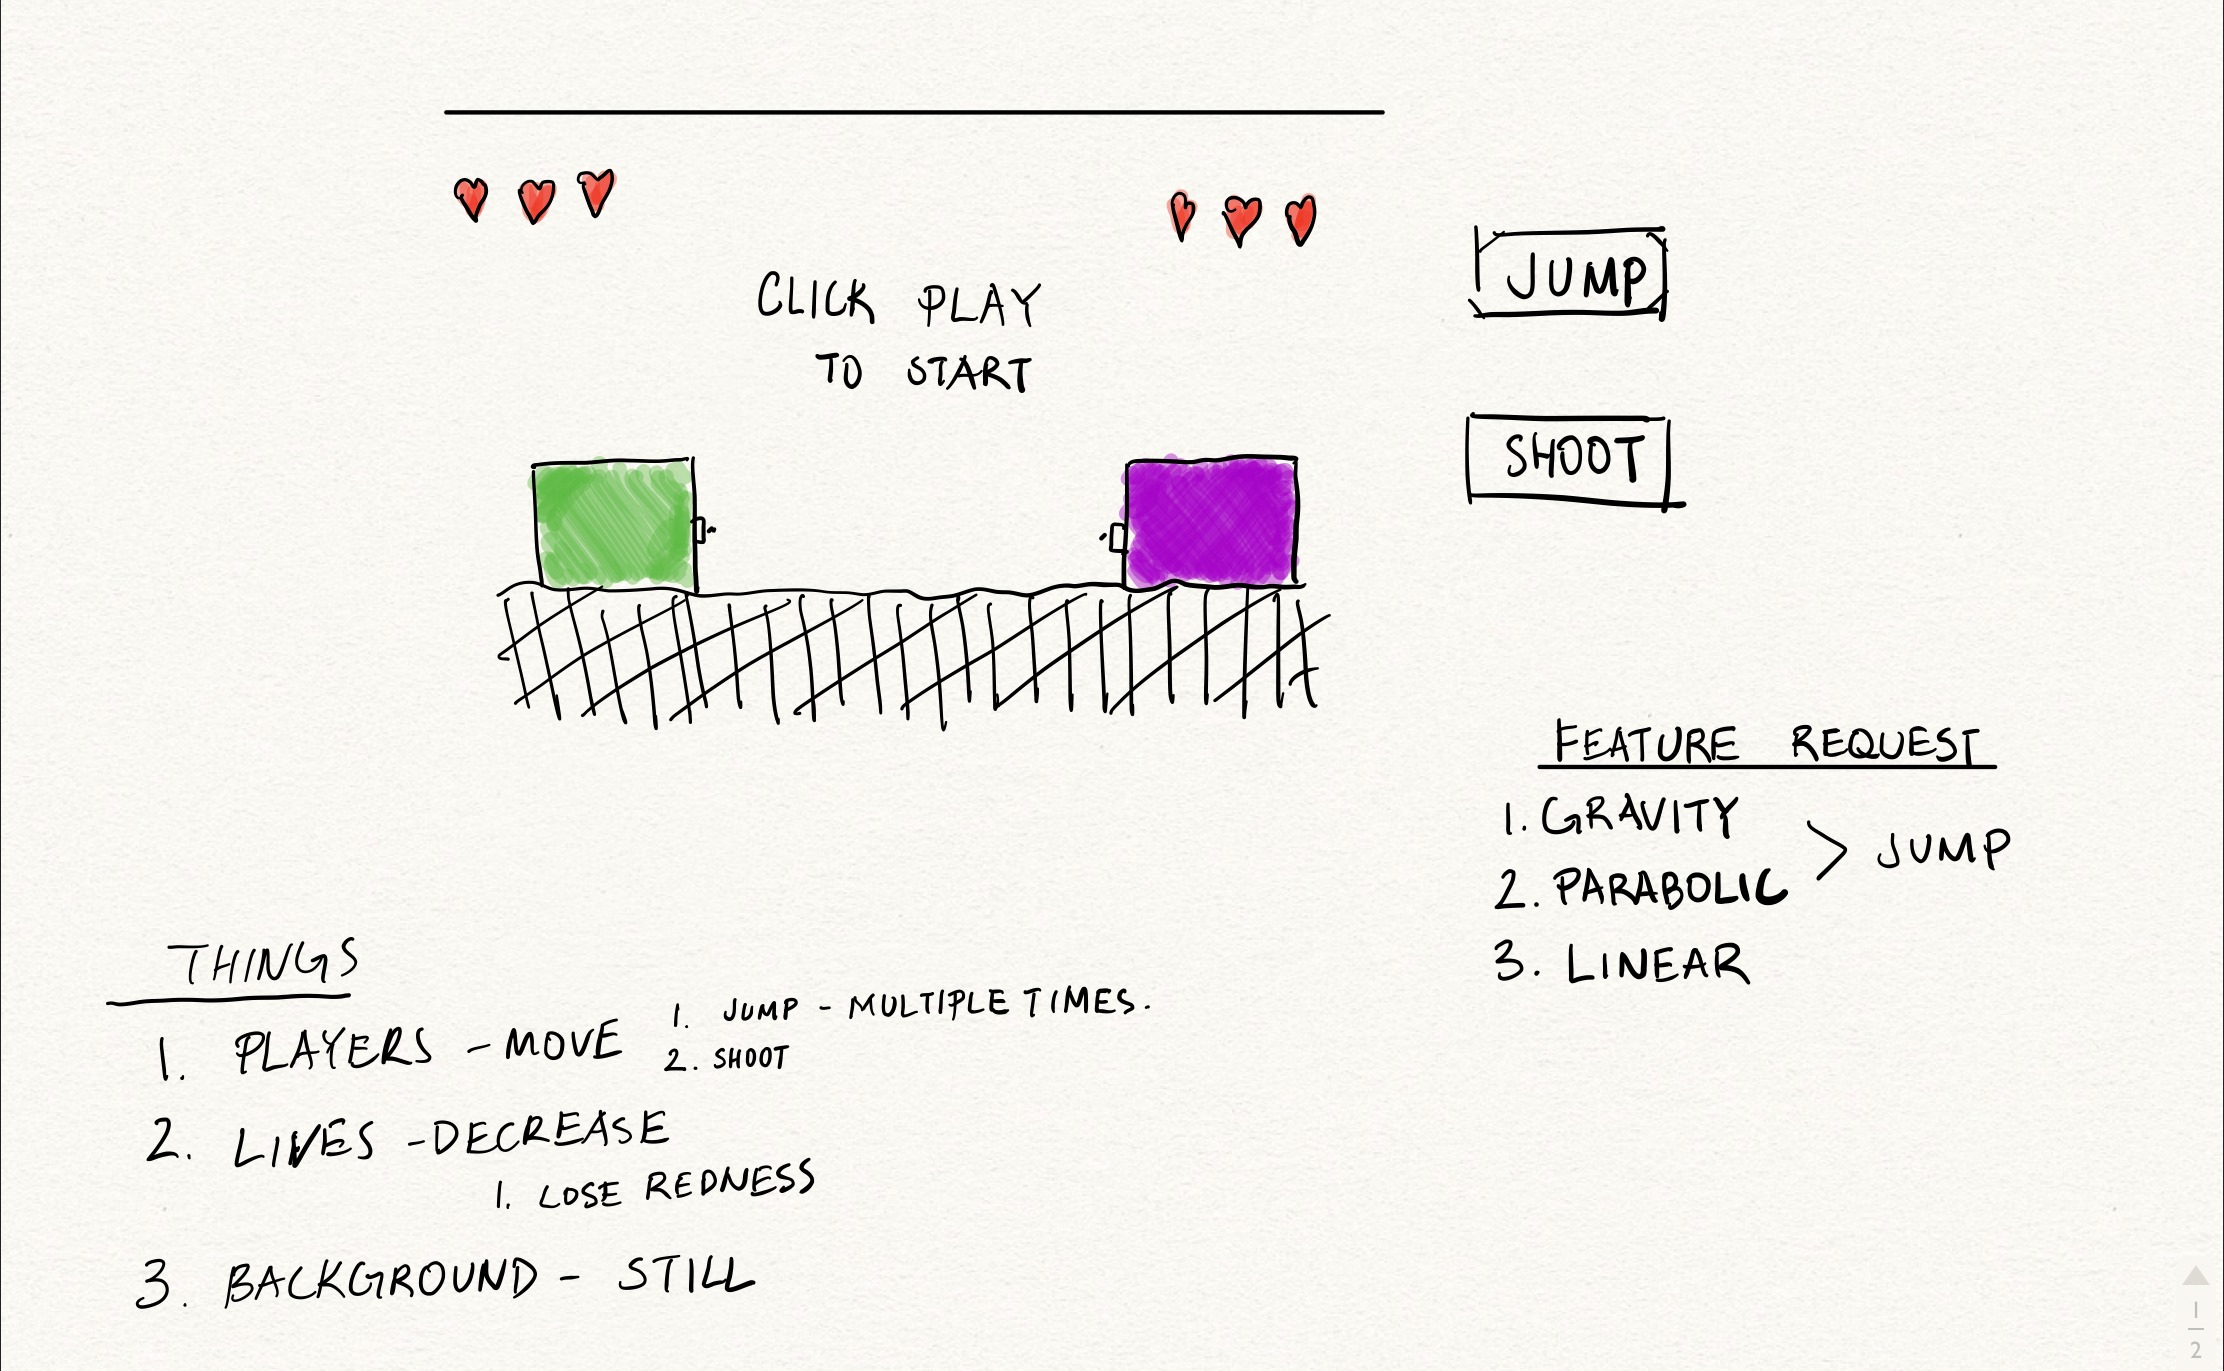 CLICK PLAY
TO START
JUMP
SHOOT
FEATURE REQUEST
1. GRAVITY
2. PARABOLIC > JUMP
3. LINEAR
THINGS
1. PLAYERS - MOVE 1. JUMP - MULTIPLE TIMES.
2. SHOOT
2. LIVES - DECREASE
1. LOSE REDNESS
3. BACKGROUND - STILL
1
2